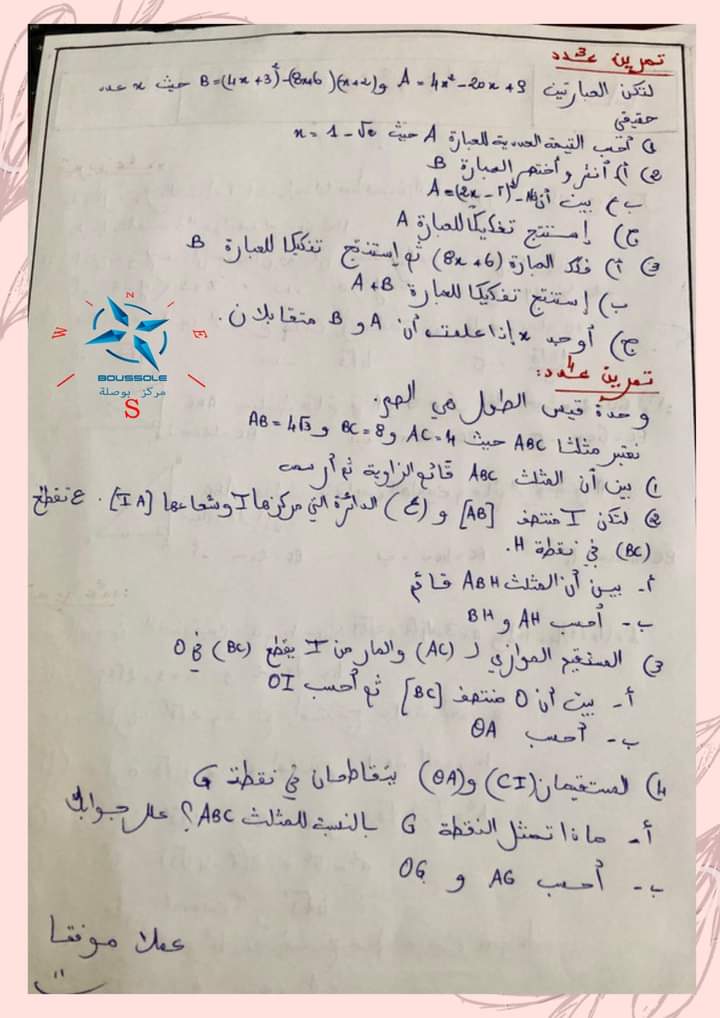 تمرين عدد 3
لتكن العبارتين A = 4x² - 20x + 9 و B = (4x + 3)² - (8x + 6)(x + 2) حيث x عدد
حقيقي
1) أحسب القيمة العددية للعبارة A حيث x = 1 - √2
2) أ) أنشر و أختصر العبارة B
ب) بين أن A = (2x - 5)² - 16
ج) إستنتج تفكيكا للعبارة A
3) أ) فكك العبارة (8x + 6) ثم إستنتج تفكيكا للعبارة B
ب) إستنتج تفكيكا للعبارة A + B
ج) أوجد x إذا علمت أن A و B متقابلان.
N
W
E
S
BOUSSOLE
مركز بوصلة
تمرين عدد 4:
وحدة قيس الطول هي الصم.
نعتبر مثلثا ABC حيث AC = 4 و BC = 8 و AB = 4√3
1) بين أن المثلث ABC قائم الزاوية ثم أرسمه
2) لتكن I منتصف [AB] و (ع) الدائرة التي مركزها I وشعاعها [IA]. ع تقطع
(BC) في نقطة H.
أ- بين أن المثلث ABH قائم
ب- أحسب AH و BH
3) المستقيم الموازي لـ (AC) والمار من I يقطع (BC) في O
أ- بين أن O منتصف [BC] ثم أحسب OI
ب- أحسب OA
4) المستقيمان (CI) و (OA) يتقاطعان في نقطة G
أ- ماذا تمثل النقطة G بالنسبة للمثلث ABC؟ علل جوابك
ب- أحسب AG و OG
عملا موفقا